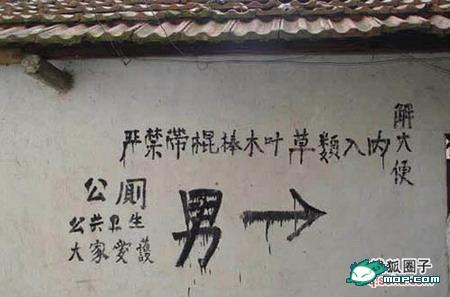 严禁带棍棒木叶草類入内
解大便
公厠
公共卫生
大家爱護
男→
搜狐圈子